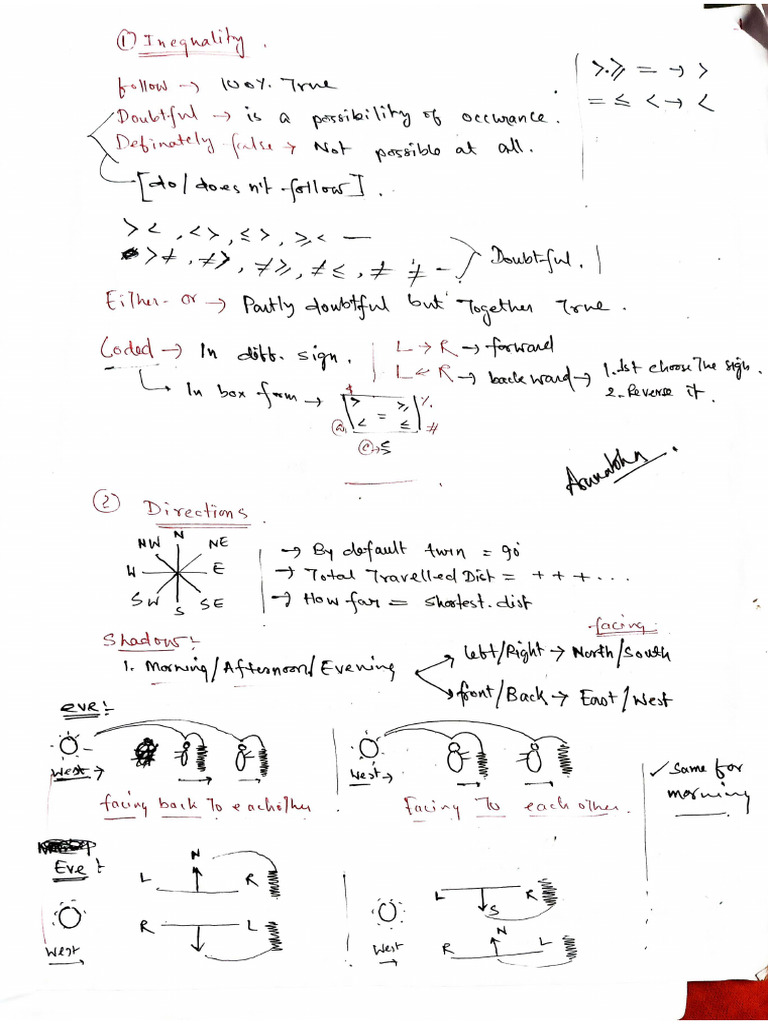 ① Inequality.
follow → 100% True
Doubtful → is a possibility of occurance.
Definately false → Not possible at all.
[do/does n't follow].
> ⩾ = → >
= ≤ < → <
> <, < >, ≤ >, ⩾ < —
> ≠, ≠ >, ≠ ⩾, ≠ ≤, ≠ ≠ —
Doubtful.
Either-or → Partly doubtful but Together True.
Coded → In diff. sign.
In box form →
> ⩾ %
@ < = ≤ #
© → ≤
L → R → forward
L ← R → backward → 1. 1st choose The sign.
2. Reverse it.
② Directions
NW N NE
W E
SW S SE
→ By default turn = 90°
→ Total Travelled Dist = + + + ...
→ How far = shortest. dist
Shadow:
1. Morning/Afternoon/Evening
facing:
left/Right → North/South
front/Back → East/West
eve:
West →
facing back to eachother
West →
Facing To each other.
✓ Same for
morning
Eve:
N
L R
R L
West →
L R
S
N
R L
West →